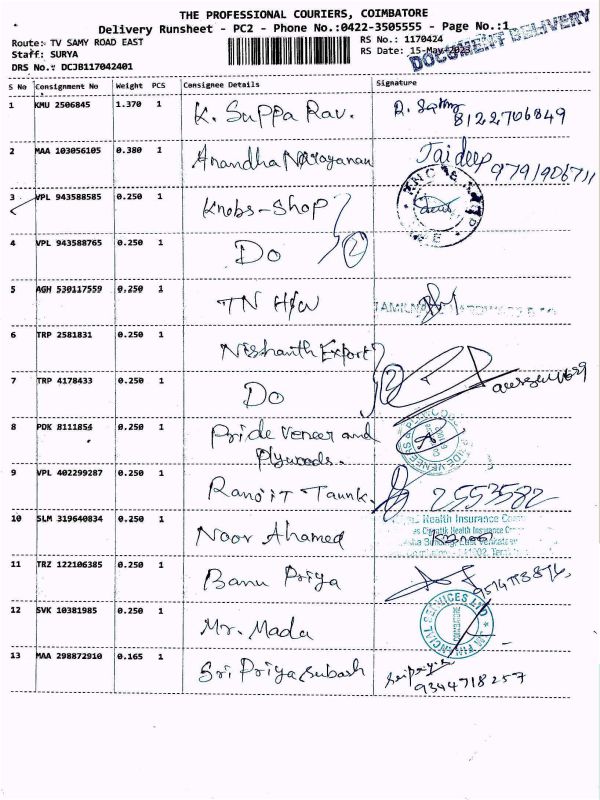 THE PROFESSIONAL COURIERS, COIMBATORE
Delivery Runsheet - PC2 - Phone No.:0422-3505555 - Page No.:1
Route: TV SAMY ROAD EAST RS No.: 1170424
Staff: SURYA RS Date: 15-May-2023
DOCUMENT DELIVERY
DRS No.: DCJB117042401
S No Consignment No Weight PCS Consignee Details Signature
1 KMU 2506845 1.370 1 K. Suppa Rav. 8122706849
2 MAA 103056105 0.380 1 Anandha Narayanan Jaideep
3 VPL 943588585 0.250 1 Knobs-Shop
4 VPL 943588765 0.250 1 Do 2
5 AGH 530117559 0.250 1 TN H/W
6 TRP 2581831 0.250 1 Nishanth Export
7 TRP 4178433 0.250 1 Do 2
8 PDK 8111854 0.250 1 Pride Veneer and
Plywoods.
9 VPL 402299287 0.250 1 Ranjit Taunk. 2553582
10 SLM 319640834 0.250 1 Noor Ahamed Health Insurance
11 TRZ 122106385 0.250 1 Banu Priya
12 SVK 10381985 0.250 1 Mr. Mada
13 MAA 298872910 0.165 1 Sri Priya Subash Sripriya
9344718257